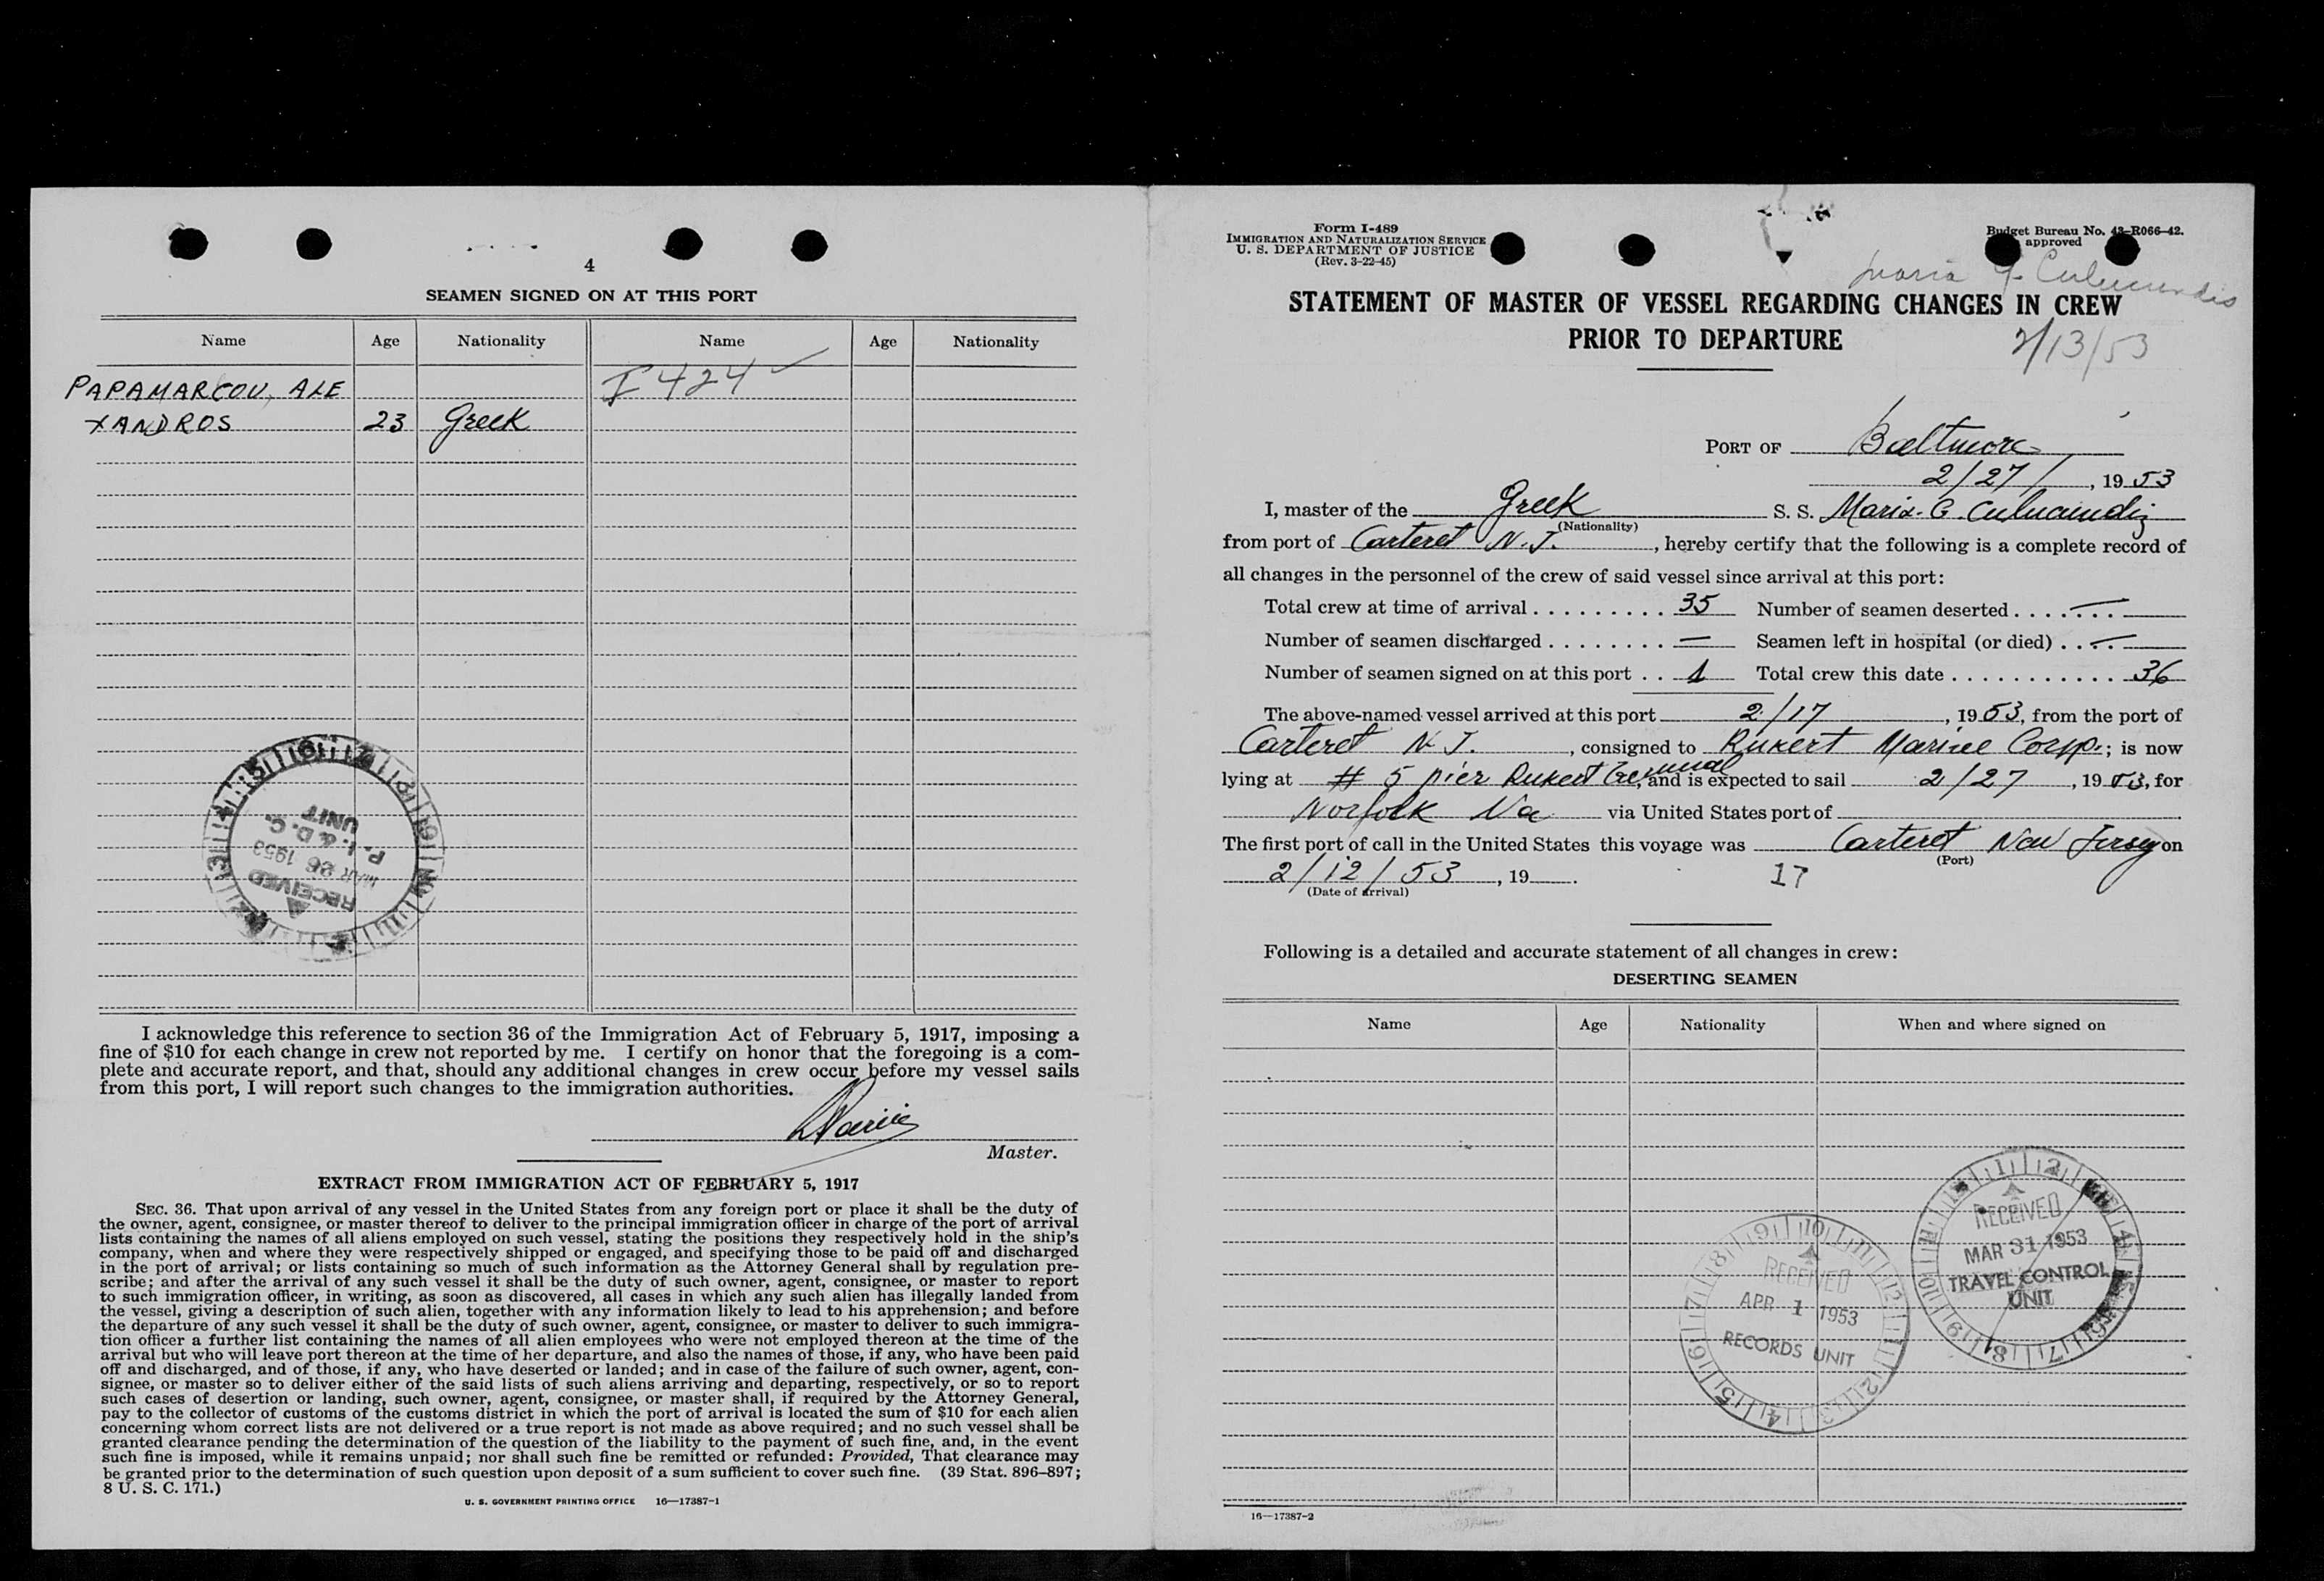 4
SEAMEN SIGNED ON AT THIS PORT
Name Age Nationality Name Age Nationality
PAPAMARCOU, ALE I 424 ✓
XANDROS 23 Greek
RECEIVED
MAR 26 1953
P. I. & D. C.
UNIT
I acknowledge this reference to section 36 of the Immigration Act of February 5, 1917, imposing a
fine of $10 for each change in crew not reported by me. I certify on honor that the foregoing is a com-
plete and accurate report, and that, should any additional changes in crew occur before my vessel sails
from this port, I will report such changes to the immigration authorities.
Master.
EXTRACT FROM IMMIGRATION ACT OF FEBRUARY 5, 1917
SEC. 36. That upon arrival of any vessel in the United States from any foreign port or place it shall be the duty of
the owner, agent, consignee, or master thereof to deliver to the principal immigration officer in charge of the port of arrival
lists containing the names of all aliens employed on such vessel, stating the positions they respectively hold in the ship's
company, when and where they were respectively shipped or engaged, and specifying those to be paid off and discharged
in the port of arrival; or lists containing so much of such information as the Attorney General shall by regulation pre-
scribe; and after the arrival of any such vessel it shall be the duty of such owner, agent, consignee, or master to report
to such immigration officer, in writing, as soon as discovered, all cases in which any such alien has illegally landed from
the vessel, giving a description of such alien, together with any information likely to lead to his apprehension; and before
the departure of any such vessel it shall be the duty of such owner, agent, consignee, or master to deliver to such immigra-
tion officer a further list containing the names of all alien employees who were not employed thereon at the time of the
arrival but who will leave port thereon at the time of her departure, and also the names of those, if any, who have been paid
off and discharged, and of those, if any, who have deserted or landed; and in case of the failure of such owner, agent, con-
signee, or master so to deliver either of the said lists of such aliens arriving and departing, respectively, or so to report
such cases of desertion or landing, such owner, agent, consignee, or master shall, if required by the Attorney General,
pay to the collector of customs of the customs district in which the port of arrival is located the sum of $10 for each alien
concerning whom correct lists are not delivered or a true report is not made as above required; and no such vessel shall be
granted clearance pending the determination of the question of the liability to the payment of such fine, and, in the event
such fine is imposed, while it remains unpaid; nor shall such fine be remitted or refunded: Provided, That clearance may
be granted prior to the determination of such question upon deposit of a sum sufficient to cover such fine. (39 Stat. 896–897;
8 U. S. C. 171.)
U. S. GOVERNMENT PRINTING OFFICE 16—17387-1
Form I-489
IMMIGRATION AND NATURALIZATION SERVICE
U. S. DEPARTMENT OF JUSTICE
(Rev. 3-22-45)
Budget Bureau No. 43-R066-42.
approved
Maria G. Culucundis
STATEMENT OF MASTER OF VESSEL REGARDING CHANGES IN CREW
PRIOR TO DEPARTURE
2/13/53
PORT OF Baltimore
2/27/, 19 53
I, master of the Greek S. S. Maria. G. Culucundis
(Nationality)
from port of Carteret N. J., hereby certify that the following is a complete record of
all changes in the personnel of the crew of said vessel since arrival at this port:
Total crew at time of arrival 35 Number of seamen deserted —
Number of seamen discharged — Seamen left in hospital (or died) —
Number of seamen signed on at this port 1 Total crew this date 36
The above-named vessel arrived at this port 2/17, 19 53, from the port of
Carteret N J., consigned to Rukert Marine Corp.; is now
lying at # 5 pier Rukert Terminal, and is expected to sail 2/27, 19 53, for
Norfolk Va via United States port of
The first port of call in the United States this voyage was Carteret New Jersey on
(Port)
2/12/53, 19 . 17
(Date of arrival)
Following is a detailed and accurate statement of all changes in crew:
DESERTING SEAMEN
Name Age Nationality When and where signed on
RECEIVED
MAR 31 1953
TRAVEL CONTROL
UNIT
RECEIVED
APR 1 1953
RECORDS UNIT
16—17387-2